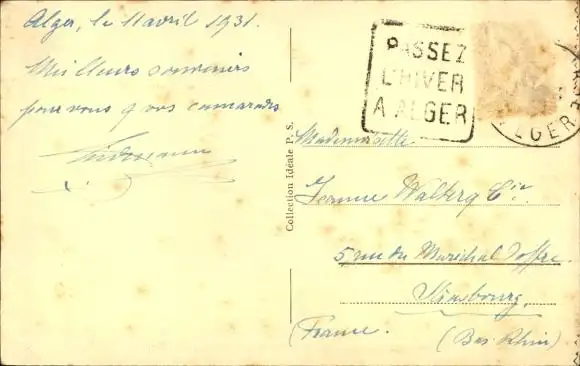 Alger, le 11 avril 1931.
Meilleurs souvenirs
pour vous & vos camarades
PASSEZ
L'HIVER
A ALGER
ALGER
Collection Idéale P. S.
Mademoiselle
Jeanne Walberg Cie
5 rue du Maréchal Joffre
Strasbourg,
(France. (Bas-Rhin)